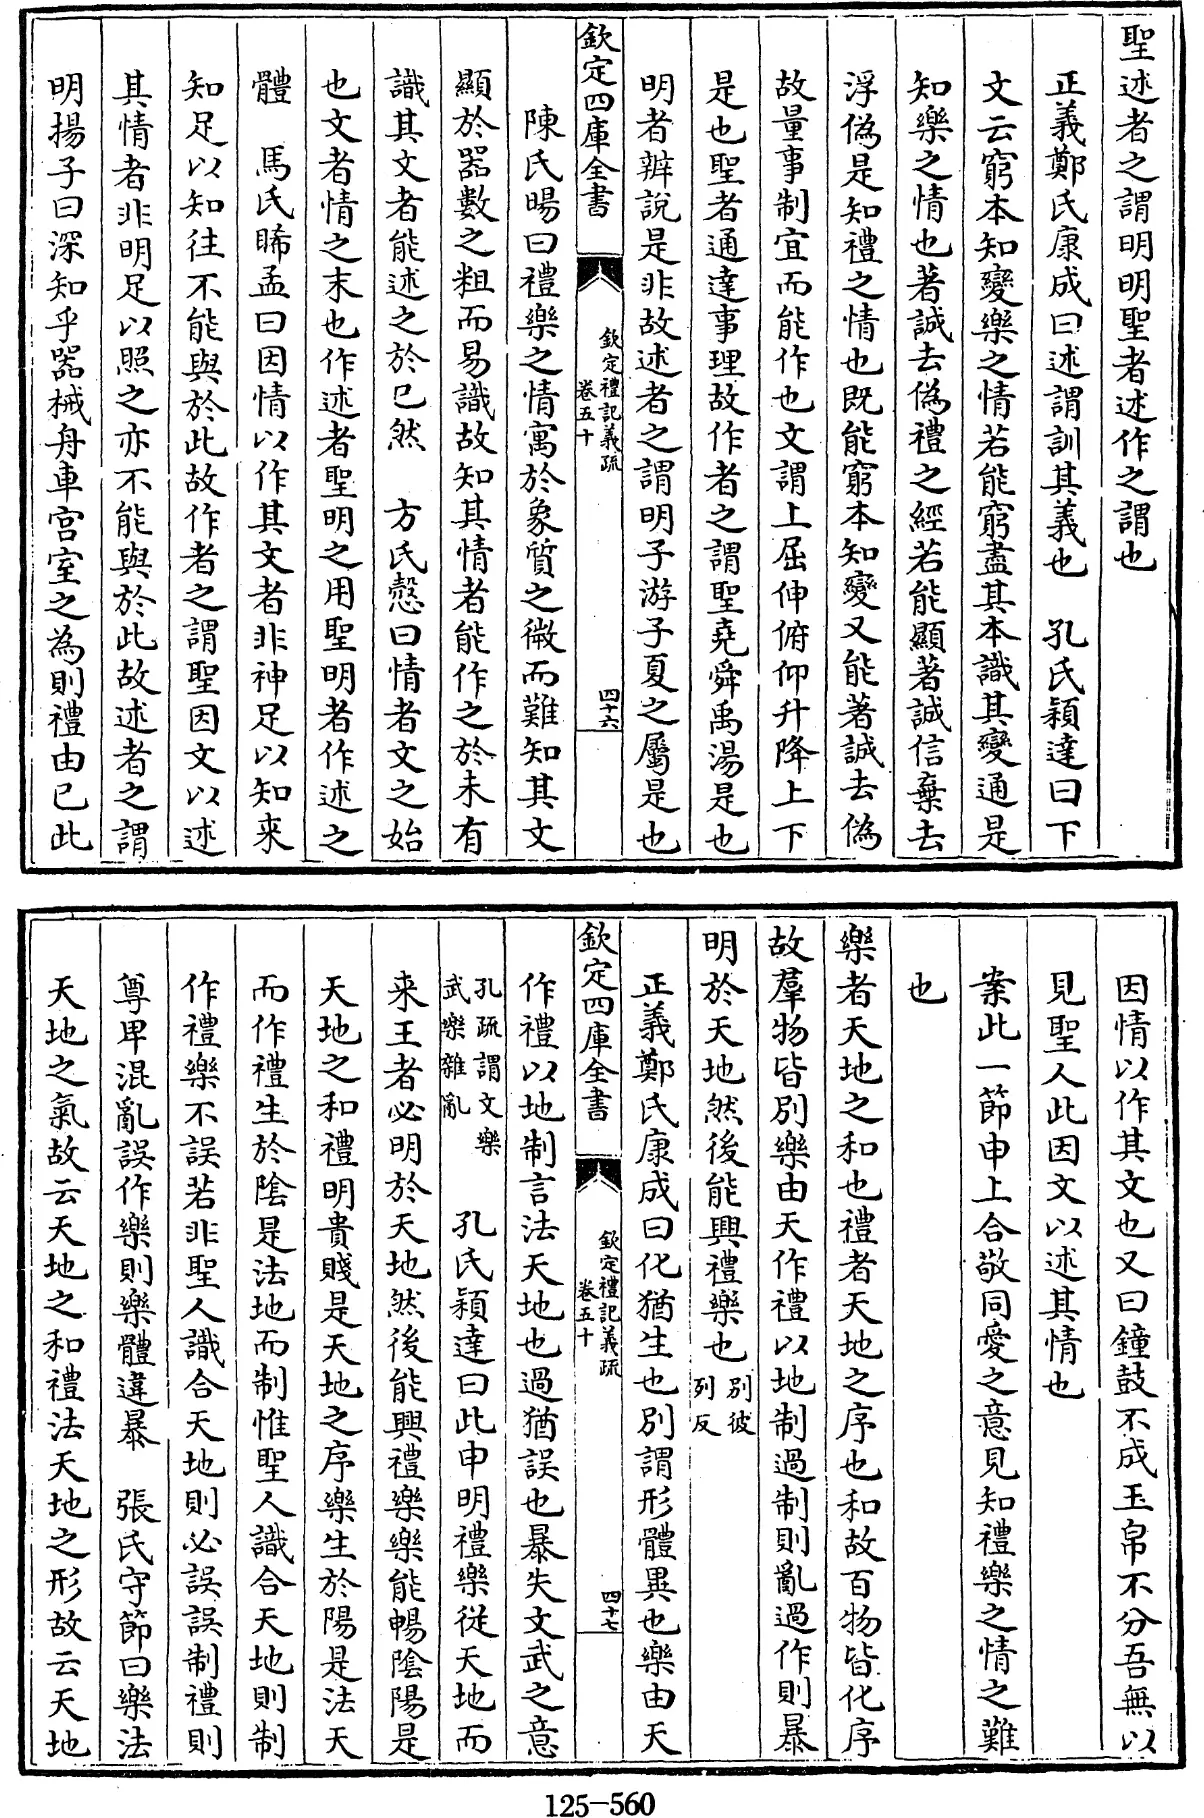 聖述者之謂明明聖者述作之謂也
正義鄭氏康成曰述謂訓其義也　孔氏穎達曰下
文云窮本知變樂之情若能窮盡其本識其變通是
知樂之情也著誠去偽禮之經若能顯著誠信棄去
浮偽是知禮之情也既能窮本知變又能著誠去偽
故量事制宜而能作也文謂上屈伸俯仰升降上下
是也聖者通達事理故作者之謂聖堯舜禹湯是也
明者辨說是非故述者之謂明子游子夏之屬是也
欽定四庫全書
欽定禮記義疏
卷五十
四十六
陳氏暘曰禮樂之情寓於象質之微而難知其文
顯於器數之粗而易識故知其情者能作之於未有
識其文者能述之於已然　方氏慤曰情者文之始
也文者情之末也作述者聖明之用聖明者作述之
體　馬氏睎孟曰因情以作其文者非神足以知来
知足以知往不能與於此故作者之謂聖因文以述
其情者非明足以照之亦不能與於此故述者之謂
明揚子曰深知乎器械舟車宫室之為則禮由已此
因情以作其文也又曰鐘鼓不成玉帛不分吾無以
見聖人此因文以述其情也
案此一節申上合敬同愛之意見知禮樂之情之難
也
樂者天地之和也禮者天地之序也和故百物皆化序
故羣物皆别樂由天作禮以地制過制則亂過作則暴
明於天地然後能興禮樂也别彼列反
正義鄭氏康成曰化猶生也别謂形體異也樂由天
欽定四庫全書
欽定禮記義疏
卷五十
四十七
作禮以地制言法天地也過猶誤也暴失文武之意
孔疏謂文樂武樂雜亂　孔氏穎達曰此申明禮樂從天地而
来王者必明於天地然後能興禮樂樂能暢陰陽是
天地之和禮明貴賤是天地之序樂生於陽是法天
而作禮生於陰是法地而制惟聖人識合天地則制
作禮樂不誤若非聖人識合天地則必誤誤制禮則
尊卑混亂誤作樂則樂體違暴　張氏守節曰樂法
天地之氣故云天地之和禮法天地之形故云天地
125-560